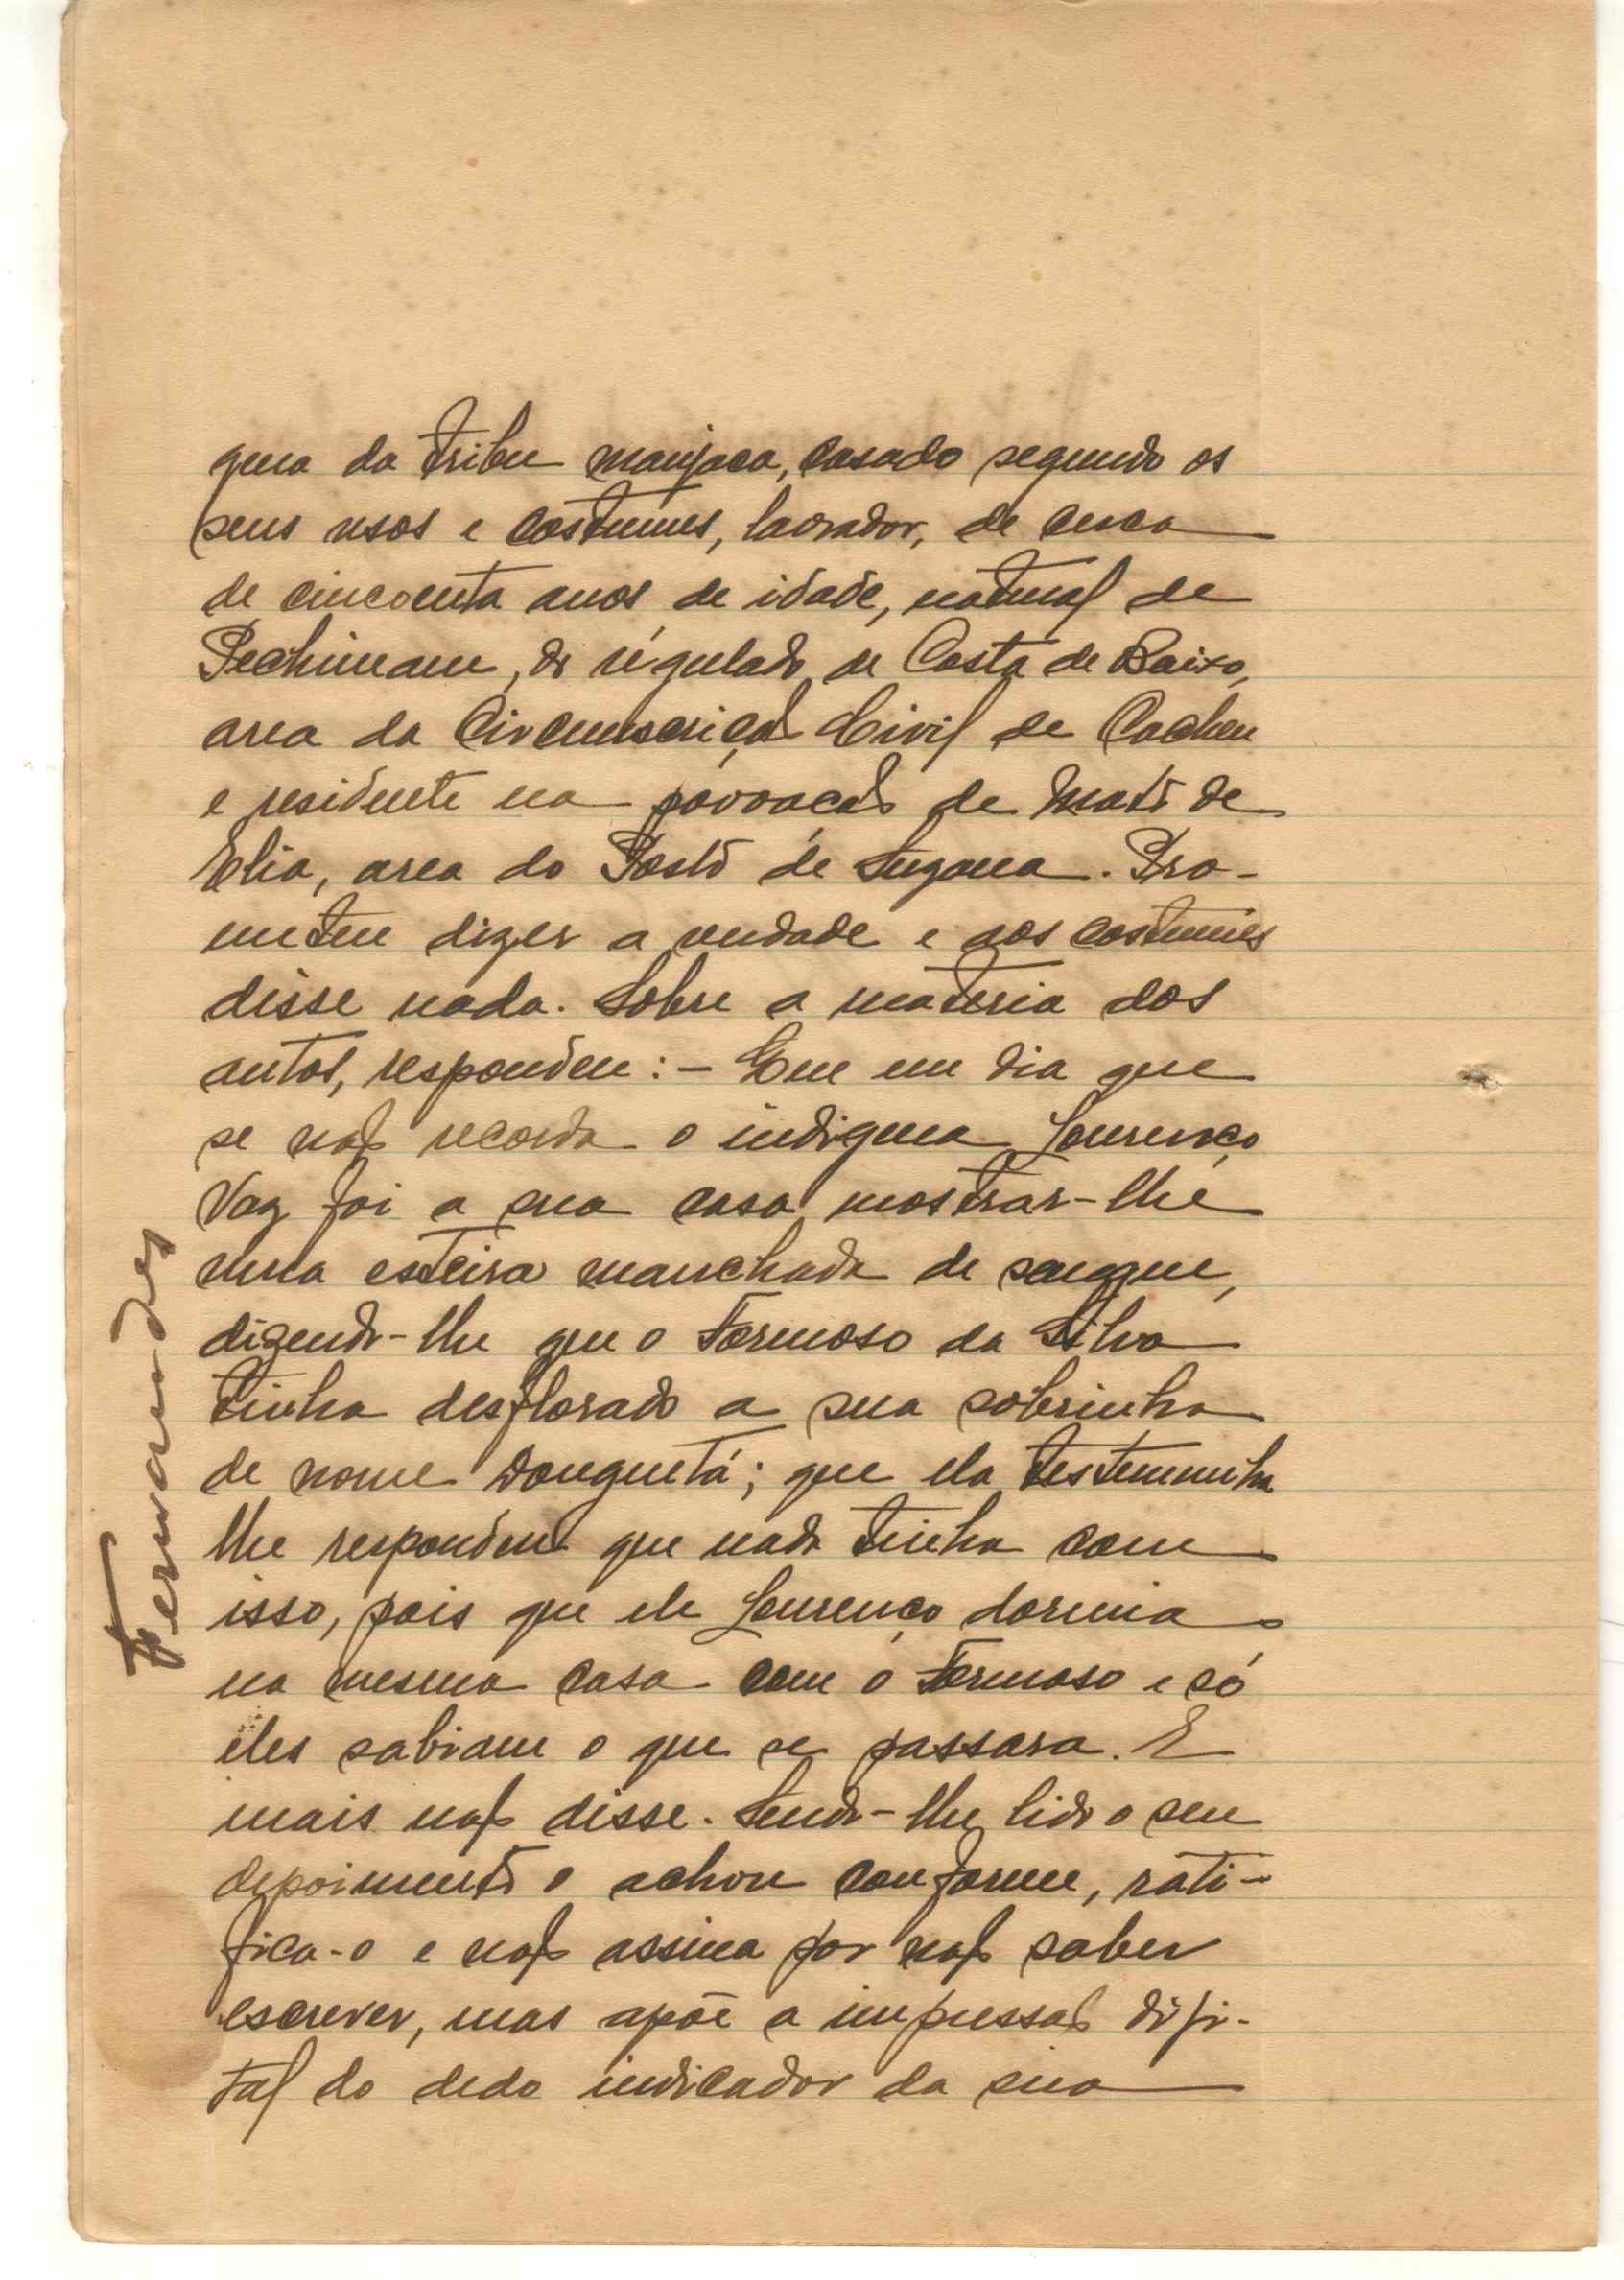 gena da tribu manjaca, casado segundo os
seus usos e costumes, lavrador, de cerca
de cincoenta anos de idade, natural de
Pechimam, do régulado de Costa de Baixo,
area da Circumscrição Civil de Cacheu
e residente na povoação de Mato de
Elia, area do Posto de Suzana. Pro-
meteu dizer a verdade e aos costumes
disse nada. Sobre a materia dos
autos, respondeu: - Que um dia que
se não recorda o indigena Lourenço
Vaz foi a sua casa mostrar-lhe
uma esteira manchada de sangue,
dizendo-lhe que o Formoso da Silva
tinha desflorado a sua sobrinha
de nome Donguetá; que ela testemunha
lhe respondeu que nada tinha com
isso, pois que ele Lourenço dormia
na mesma casa com o Formoso e só
eles sabiam o que se passara. E
mais não disse. Sendo-lhe lido o seu
depoimento o achou conforme, rati-
fica-o e não assina por não saber
escrever, mas apõe a impressão digi-
tal do dedo indicador da sua
Fernandes